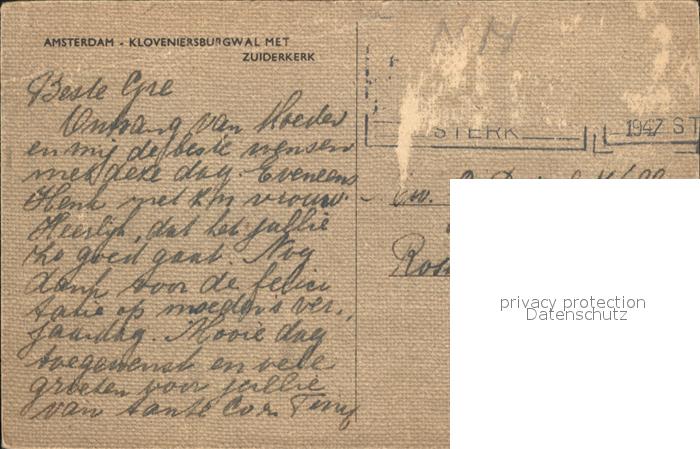 AMSTERDAM - KLOVENIERSBURGWAL MET
ZUIDERKERK
Beste Gre
Ontvang van Moeder
en mij de beste wensen
met deze dag. Eveneens
Henk met z'n vrouw.
Heerlijk, dat het jullie
zo goed gaat. Nog
dank voor de felici
tatie op moeder's ver-
jaardag. Mooie dag
toegewenst en vele
groeten voor jullie
van tante Co en
STERK
1947 ST
privacy protection
Datenschutz